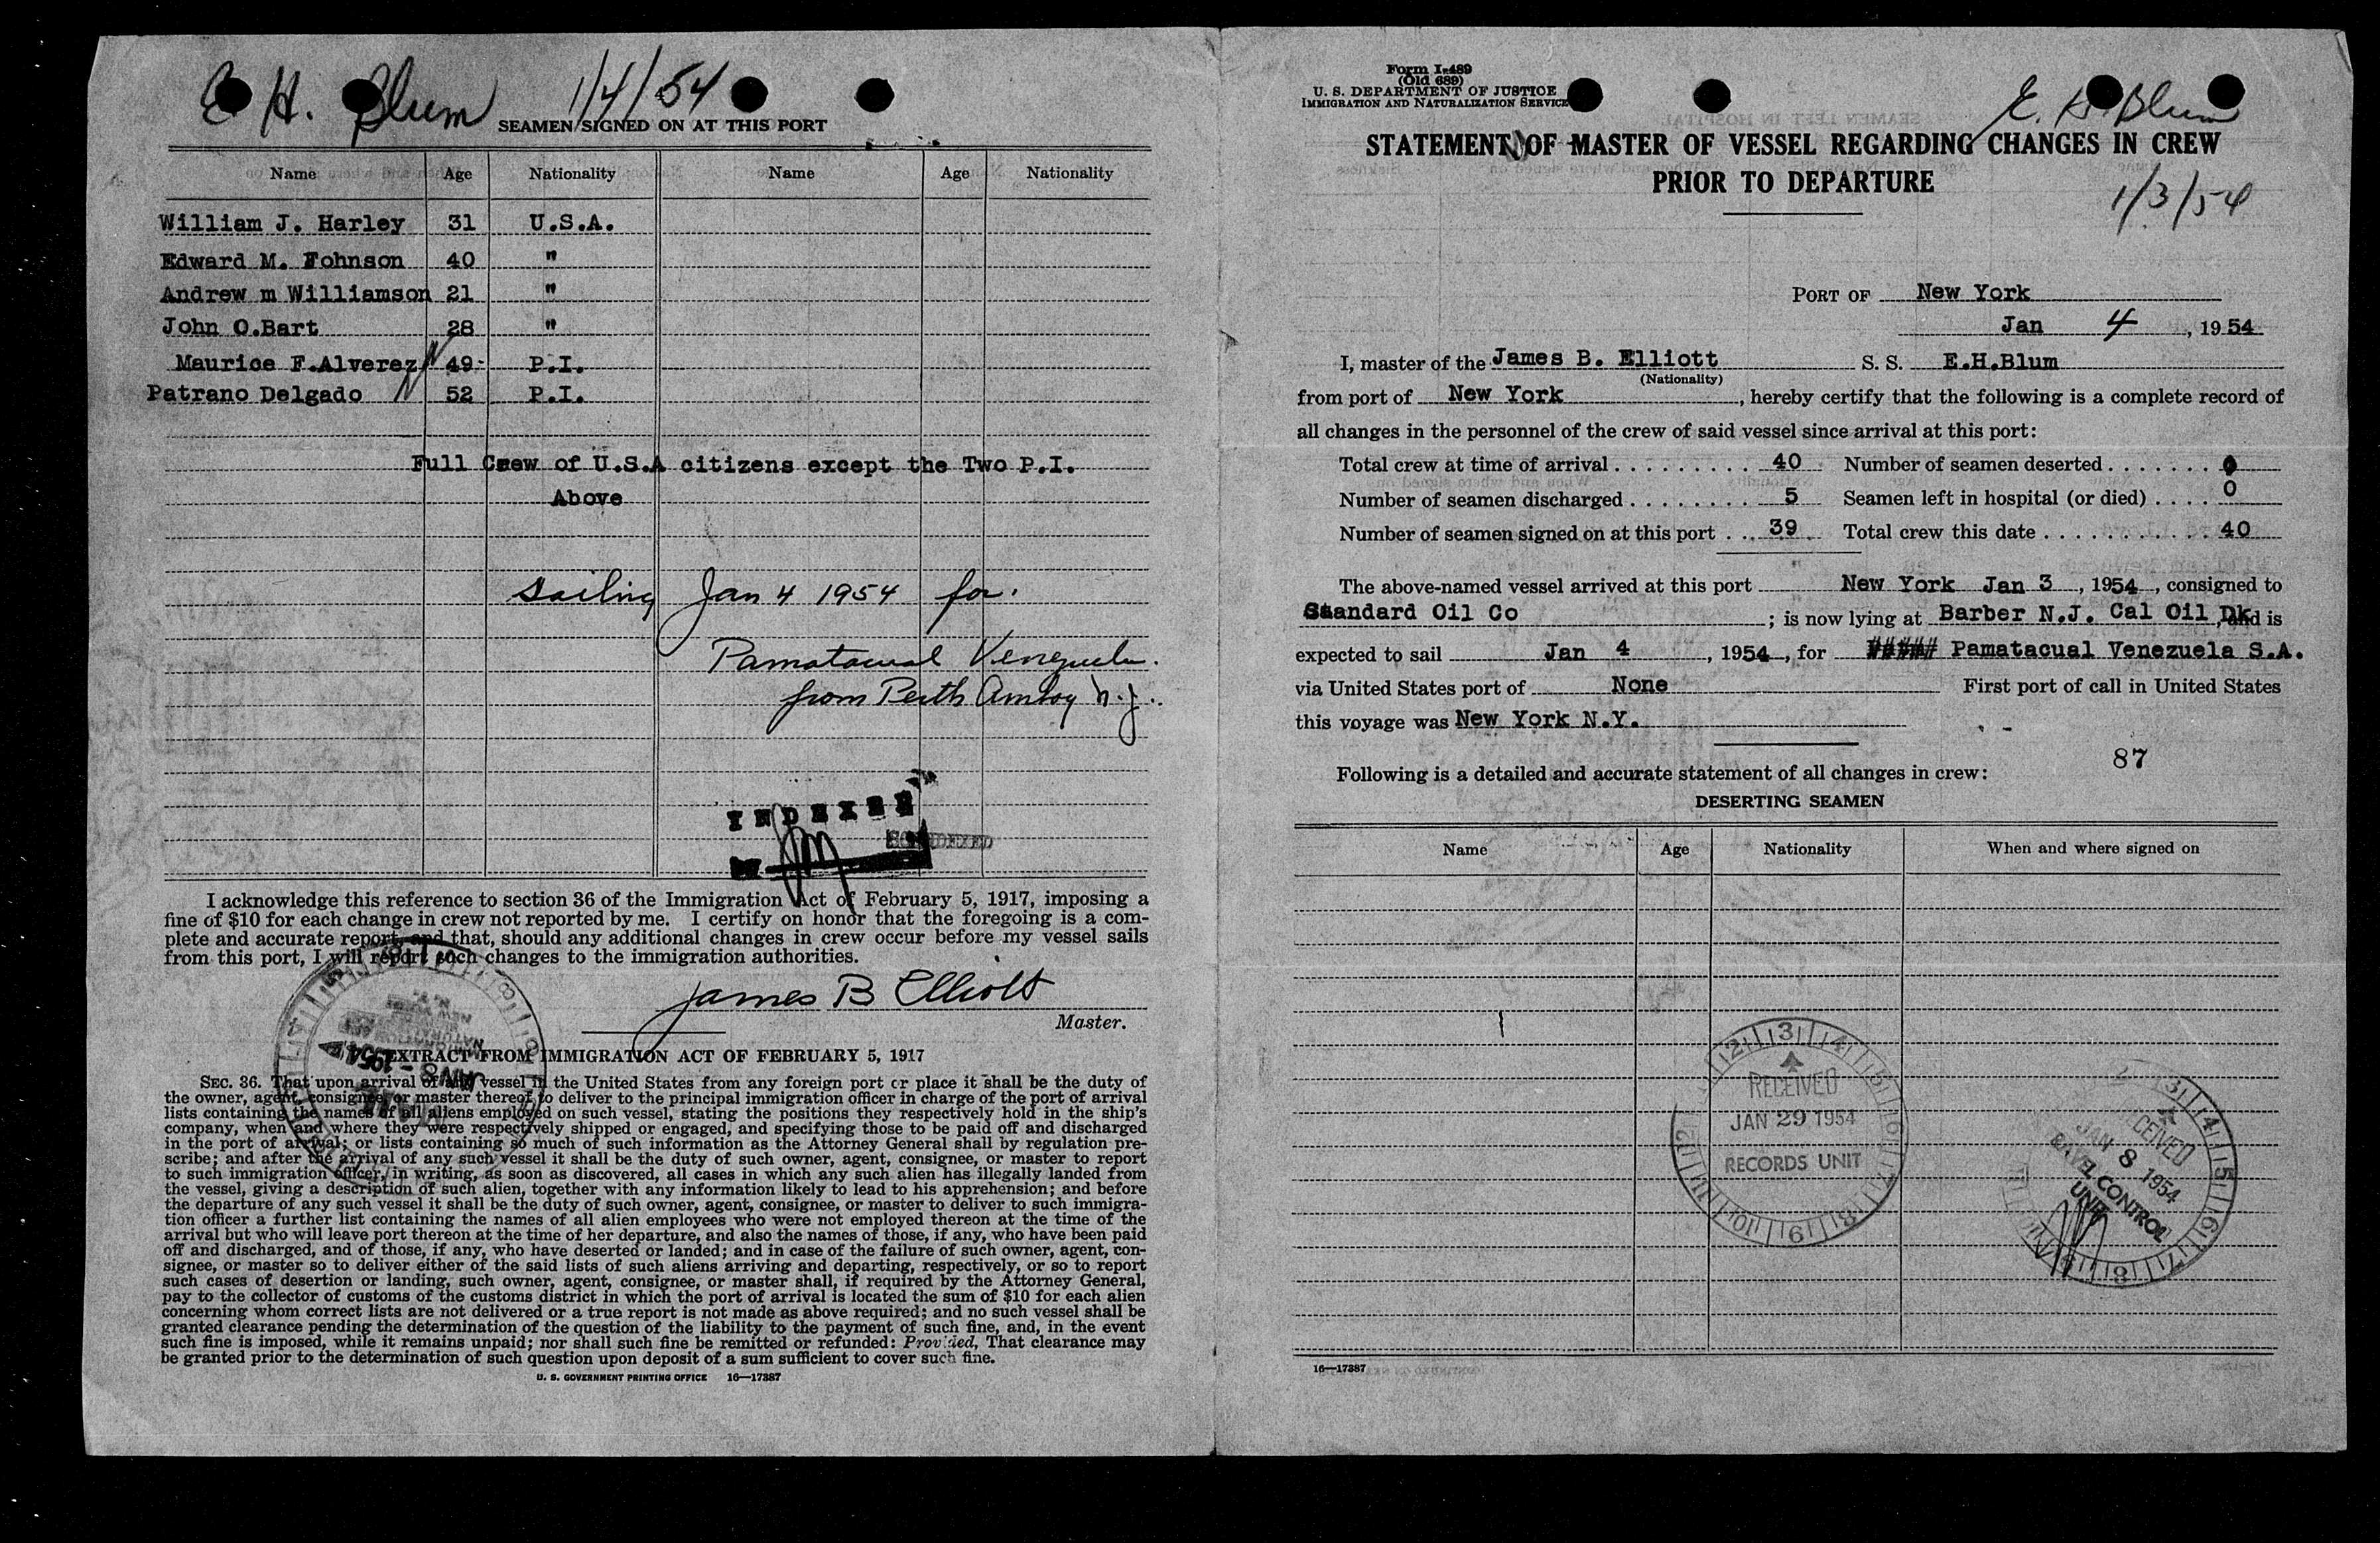 E. H. Blum 1/4/54
SEAMEN SIGNED ON AT THIS PORT
Name Age Nationality Name Age Nationality
William J. Harley 31 U.S.A.
Edward M. Fohnson 40 "
Andrew m Williamson 21 "
John O.Bart 28 "
Maurice F.Alverez 49 P.I.
Patrano Delgado 52 P.I.
Full Crew of U.S.A citizens except the Two P.I.
Above
Sailing Jan 4 1954 for.
Pamatacual Venezuela.
from Perth Amboy N.J.
INDEXED
I acknowledge this reference to section 36 of the Immigration Act of February 5, 1917, imposing a
fine of $10 for each change in crew not reported by me. I certify on honor that the foregoing is a com-
plete and accurate report, and that, should any additional changes in crew occur before my vessel sails
from this port, I will report such changes to the immigration authorities.
James B Elliott
Master.
JAN 8 - 1954
EXTRACT FROM IMMIGRATION ACT OF FEBRUARY 5, 1917
SEC. 36. That upon arrival of any vessel in the United States from any foreign port or place it shall be the duty of
the owner, agent, consignee, or master thereof to deliver to the principal immigration officer in charge of the port of arrival
lists containing the names of all aliens employed on such vessel, stating the positions they respectively hold in the ship's
company, when and where they were respectively shipped or engaged, and specifying those to be paid off and discharged
in the port of arrival; or lists containing so much of such information as the Attorney General shall by regulation pre-
scribe; and after the arrival of any such vessel it shall be the duty of such owner, agent, consignee, or master to report
to such immigration officer, in writing, as soon as discovered, all cases in which any such alien has illegally landed from
the vessel, giving a description of such alien, together with any information likely to lead to his apprehension; and before
the departure of any such vessel it shall be the duty of such owner, agent, consignee, or master to deliver to such immigra-
tion officer a further list containing the names of all alien employees who were not employed thereon at the time of the
arrival but who will leave port thereon at the time of her departure, and also the names of those, if any, who have been paid
off and discharged, and of those, if any, who have deserted or landed; and in case of the failure of such owner, agent, con-
signee, or master so to deliver either of the said lists of such aliens arriving and departing, respectively, or so to report
such cases of desertion or landing, such owner, agent, consignee, or master shall, if required by the Attorney General,
pay to the collector of customs of the customs district in which the port of arrival is located the sum of $10 for each alien
concerning whom correct lists are not delivered or a true report is not made as above required; and no such vessel shall be
granted clearance pending the determination of the question of the liability to the payment of such fine, and, in the event
such fine is imposed, while it remains unpaid; nor shall such fine be remitted or refunded: Provided, That clearance may
be granted prior to the determination of such question upon deposit of a sum sufficient to cover such fine.
U. S. GOVERNMENT PRINTING OFFICE 16—17387
Form I-489
(Old 689)
U. S. DEPARTMENT OF JUSTICE
IMMIGRATION AND NATURALIZATION SERVICE
E. H. Blum
STATEMENT OF MASTER OF VESSEL REGARDING CHANGES IN CREW
PRIOR TO DEPARTURE
1/3/54
PORT OF New York
Jan 4, 1954
I, master of the James B. Elliott S. S. E.H.Blum
(Nationality)
from port of New York, hereby certify that the following is a complete record of
all changes in the personnel of the crew of said vessel since arrival at this port:
Total crew at time of arrival . . . . . . . . . 40 Number of seamen deserted . . . . . . . 0
Number of seamen discharged . . . . . . . . 5 Seamen left in hospital (or died) . . . . 0
Number of seamen signed on at this port . . . 39 Total crew this date . . . . . . . . . . . 40
The above-named vessel arrived at this port New York Jan 3, 1954, consigned to
Standard Oil Co ; is now lying at Barber N.J. Cal Oil Dk and is
expected to sail Jan 4, 1954, for ##### Pamatacual Venezuela S.A.
via United States port of None First port of call in United States
this voyage was New York N.Y.
87
Following is a detailed and accurate statement of all changes in crew:
DESERTING SEAMEN
Name Age Nationality When and where signed on
RECEIVED
JAN 29 1954
RECORDS UNIT
RECEIVED
JAN 8 1954
CONTROL
UNIT
16—17387